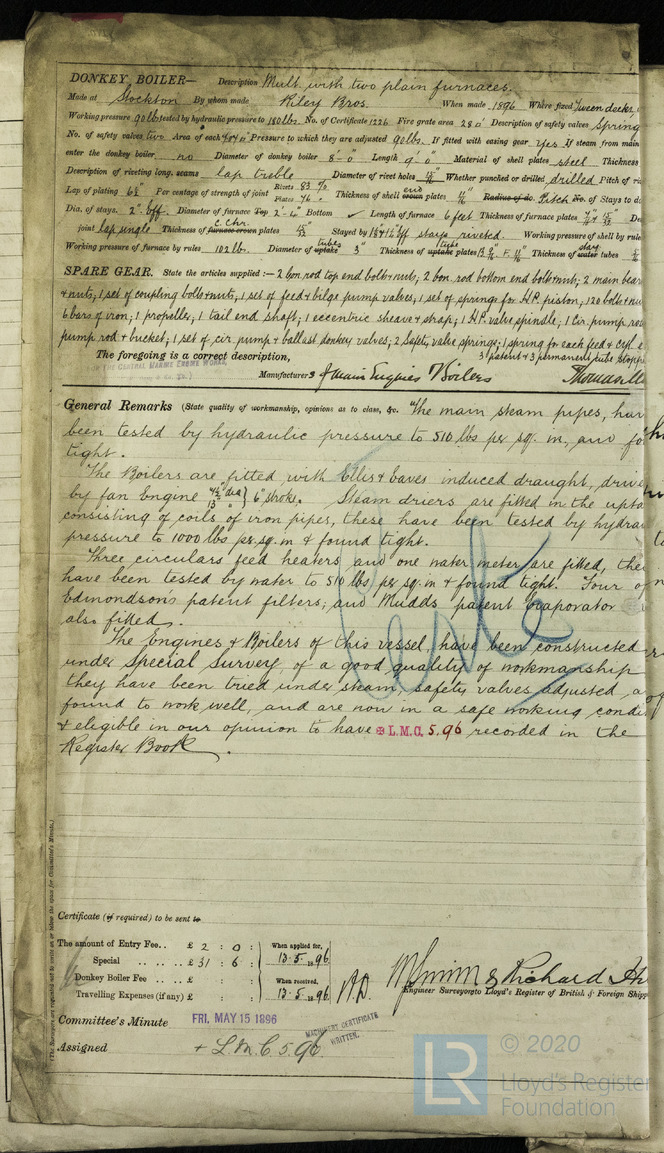 DONKEY BOILER— Description Mult. with two plain furnaces.
Made at Stockton By whom made Riley Bros. When made 1896 Where fixed Tween decks
Working pressure 90lbs tested by hydraulic pressure to 180lbs. No. of Certificate 1226 Fire grate area 28 Description of safety valves Spring
No. of safety valves two Area of each Pressure to which they are adjusted 90lbs. If fitted with easing gear yes If steam from main
enter the donkey boiler no Diameter of donkey boiler 8-0" Length 9'0" Material of shell plates steel Thickness
Description of riveting long. seams lap treble Diameter of rivet holes Whether punched or drilled drilled Pitch of ri
Lap of plating 6½ Per centage of strength of joint Rivets 83% Plates 76 Thickness of shell crown plates Radius of do. Pitch No. of Stays to d
Dia. of stays. 2" eff. Diameter of furnace Top 2-4" Bottom ✓ Length of furnace 6 feet Thickness of furnace plates De
joint lap single Thickness of furnace crown plates Stayed by stays riveted. Working pressure of shell by rule
Working pressure of furnace by rules 102 lb. Diameter of uptake tubes 3" Thickness of uptake tube plates Thickness of water stay tubes
SPARE GEAR. State the articles supplied:— 2 con rod top end bolts & nuts; 2 con. rod bottom end bolts & nuts; 2 main bear
& nuts; 1 set of coupling bolts & nuts; 1 set of feed & bilge pump valves; 1 set of springs for H.P. piston; 120 bolts & nu
6 bars of iron; 1 propeller; 1 tail end shaft; 1 eccentric sheave & strap; 1 H.P. valve spindle; 1 cir. pump
pump rod & bucket; 1 set of cir. pump & ballast donkey valves; 2 Safety valve springs; 1 spring for each feed & cyl. e
3 patent & 3 permanent tube stoppe
The foregoing is a correct description,
FOR THE CENTRAL MARINE ENGINE WORKS,
Manufacturers of Main Engines & Boilers Thomas
General Remarks (State quality of workmanship, opinions as to class, &c. The main steam pipes, hav
been tested by hydraulic pressure to 510 lbs per sq. in, and fo
tight.
The Boilers are fitted with Ellis & Eaves induced draught, drive
by fan Engine 6" stroke. Steam driers are fitted in the upta
consisting of coils of iron pipes, these have been tested by hydrau
pressure to 1000 lbs per sq. in & found tight.
Three circulars feed heaters and one water meter are fitted, the
have been tested by water to 510 lbs per sq. in & found tight. Four of
Edmondson's patent filters; and Mudds patent Evaporator
also fitted.
The Engines & Boilers of this vessel, have been constructed
under Special Survey, of a good quality of workmanship
they have been tried under steam, safety valves adjusted, a
found to work well, and are now in a safe working condi
& eligible in our opinion to have ✠ L.M.C. 5.96 recorded in the
Register Book.
Certificate (if required) to be sent to
The amount of Entry Fee.. £ 2 : 0 : When applied for,
Special .. .. £ 31 : 6 : 13.5.1896
Donkey Boiler Fee .. £ : : When received,
Travelling Expenses (if any) £ : : 13.5.1896
Engineer Surveyors to Lloyd's Register of British & Foreign Shipp
Committee's Minute FRI. MAY 15 1896
MACHINERY CERTIFICATE WRITTEN.
Assigned + L.M.C 5.96
(The Surveyors are requested not to write on or below the space for Committee's Minute.)
LR © 2020
Lloyd's Register
Foundation